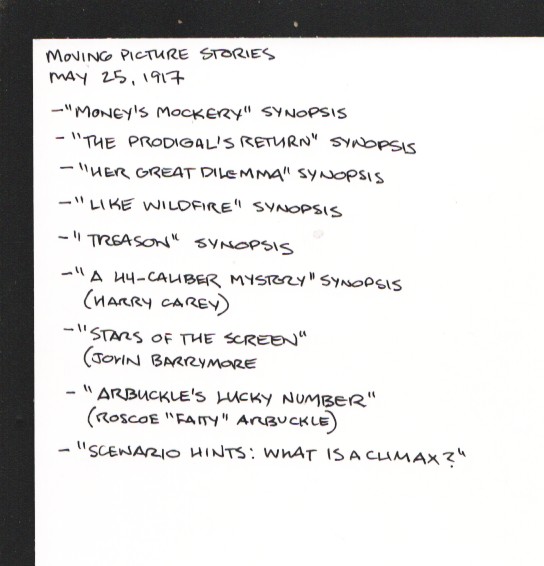 MOVING PICTURE STORIES
MAY 25, 1917
-"MONEY'S MOCKERY" SYNOPSIS
-"THE PRODIGAL'S RETURN" SYNOPSIS
-"HER GREAT DILEMMA" SYNOPSIS
-"LIKE WILDFIRE" SYNOPSIS
-"TREASON" SYNOPSIS
-"A 44-CALIBER MYSTERY" SYNOPSIS
(HARRY CAREY)
-"STARS OF THE SCREEN"
(JOHN BARRYMORE
-"ARBUCKLE'S LUCKY NUMBER"
(ROSCOE "FATTY" ARBUCKLE)
-"SCENARIO HINTS: WHAT IS A CLIMAX?"